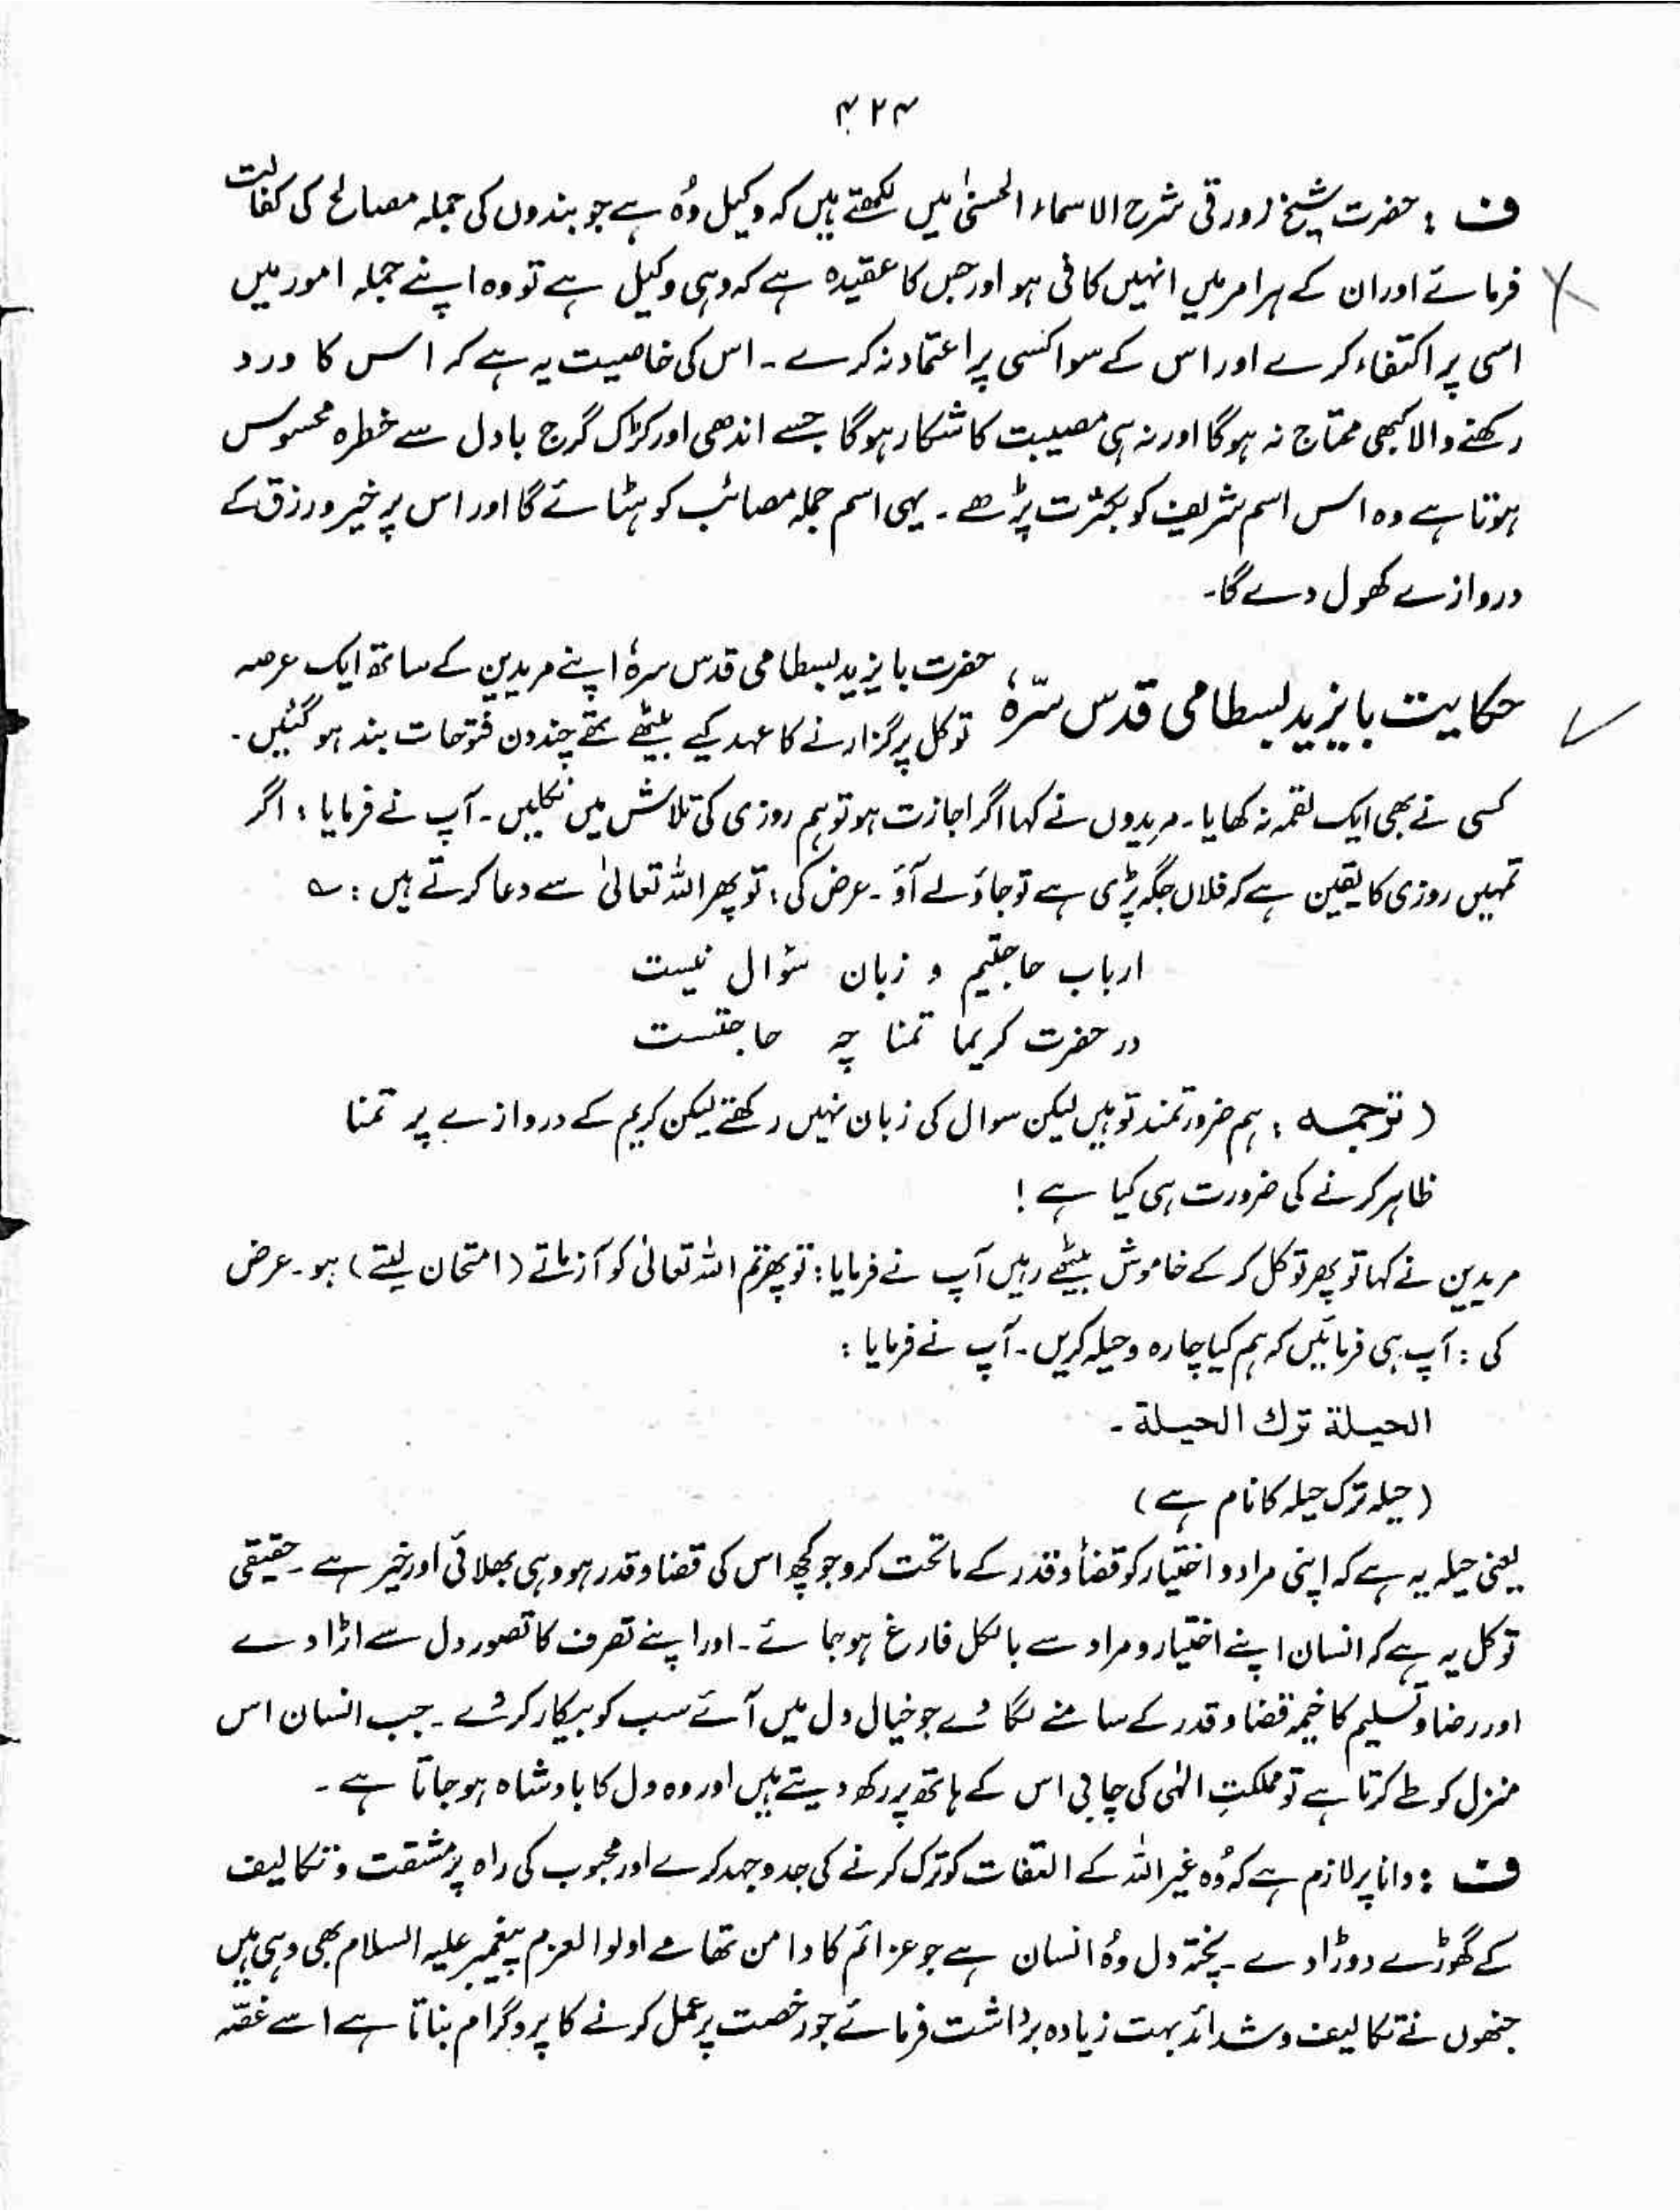 ۴۲۴
ف : حضرت شیخ زورقی شرح الاسماء الحسنیٰ میں لکھتے ہیں کہ وکیل وُہ ہے جو بندوں کی جملہ مصالح کی کفالت
فرمائے اور ان کے ہر امر میں انہیں کافی ہو اور جس کا عقیدہ ہے کہ وہی وکیل ہے تو وہ اپنے جملہ امور میں
اسی پر اکتفاء کرے اور اس کے سوا کسی پر اعتماد نہ کرے ۔ اس کی خاصیت یہ ہے کہ اس کا ورد
رکھنے والا کبھی محتاج نہ ہوگا اور نہ ہی مصیبت کا شکار ہوگا جسے اندھی اور کڑک گرج بادل سے خطرہ محسوس
ہوتا ہے وہ اس اسم شریف کو بکثرت پڑھے ۔ یہی اسم جملہ مصائب کو ہٹائے گا اور اس پر خیر و رزق کے
دروازے کھول دے گا۔
حکایت بایزید بسطامی قدس سرّہٗ
حضرت بایزید بسطامی قدس سرہٗ اپنے مریدین کے ساتھ ایک عرصہ
توکل پر گزارنے کا عہد کیے بیٹھے تھے چند دن فتوحات بند ہو گئیں ۔
کسی نے بھی ایک لقمہ نہ کھایا ۔ مریدوں نے کہا اگر اجازت ہو تو ہم روزی کی تلاش میں نکلیں ۔ آپ نے فرمایا : اگر
تمہیں روزی کا یقین ہے کہ فلاں جگہ پڑی ہے تو جاؤ لے آؤ ۔ عرض کی : تو پھر اللہ تعالیٰ سے دعا کرتے ہیں : ؎
ارباب حاجتیم و زبان سؤال نیست
در حضرت کریما تمنا چہ حاجتست
( ترجمہ : ہم ضرورتمند تو ہیں لیکن سوال کی زبان نہیں رکھتے لیکن کریم کے دروازے پر تمنا
ظاہر کرنے کی ضرورت ہی کیا ہے !
مریدین نے کہا تو پھر توکل کر کے خاموش بیٹھے رہیں آپ نے فرمایا : تو پھر تم اللہ تعالیٰ کو آزماتے ( امتحان لیتے ) ہو ۔ عرض
کی : آپ ہی فرمائیں کہ ہم کیا چارہ و حیلہ کریں ۔ آپ نے فرمایا :
الحیلة ترك الحیلة ۔
( حیلہ ترک حیلہ کا نام ہے )
یعنی حیلہ یہ ہے کہ اپنی مراد و اختیار کو قضأ و قدر کے ماتحت کرو جو کچھ اس کی قضا و قدر ہو وہی بھلائی اور خیر ہے ۔ حقیقی
توکل یہ ہے کہ انسان اپنے اختیار و مراد سے بالکل فارغ ہو جائے ۔ اور اپنے تصرف کا تصور دل سے اڑا دے
اور رضا و تسلیم کا خیمہ قضا و قدر کے سامنے لگا دے جو خیال دل میں آئے سب کو بیکار کر دے ۔ جب انسان اس
منزل کو طے کرتا ہے تو مملکتِ الہٰی کی چابی اس کے ہاتھ پر رکھ دیتے ہیں اور وہ دل کا بادشاہ ہو جاتا ہے ۔
ف : دانا پر لازم ہے کہ وُہ غیر اللہ کے التفات کو ترک کرنے کی جدوجہد کرے اور محبوب کی راہ پر مشقت و تکالیف
کے گھوڑے دوڑا دے ۔ پختہ دل وُہ انسان ہے جو عزائم کا دامن تھامے اولوا العزم پیغمبر علیہ السلام بھی وہی ہیں
جنھوں نے تکالیف و شدائد بہت زیادہ برداشت فرمائے جو رخصت پر عمل کرنے کا پروگرام بناتا ہے اسے غصّہ